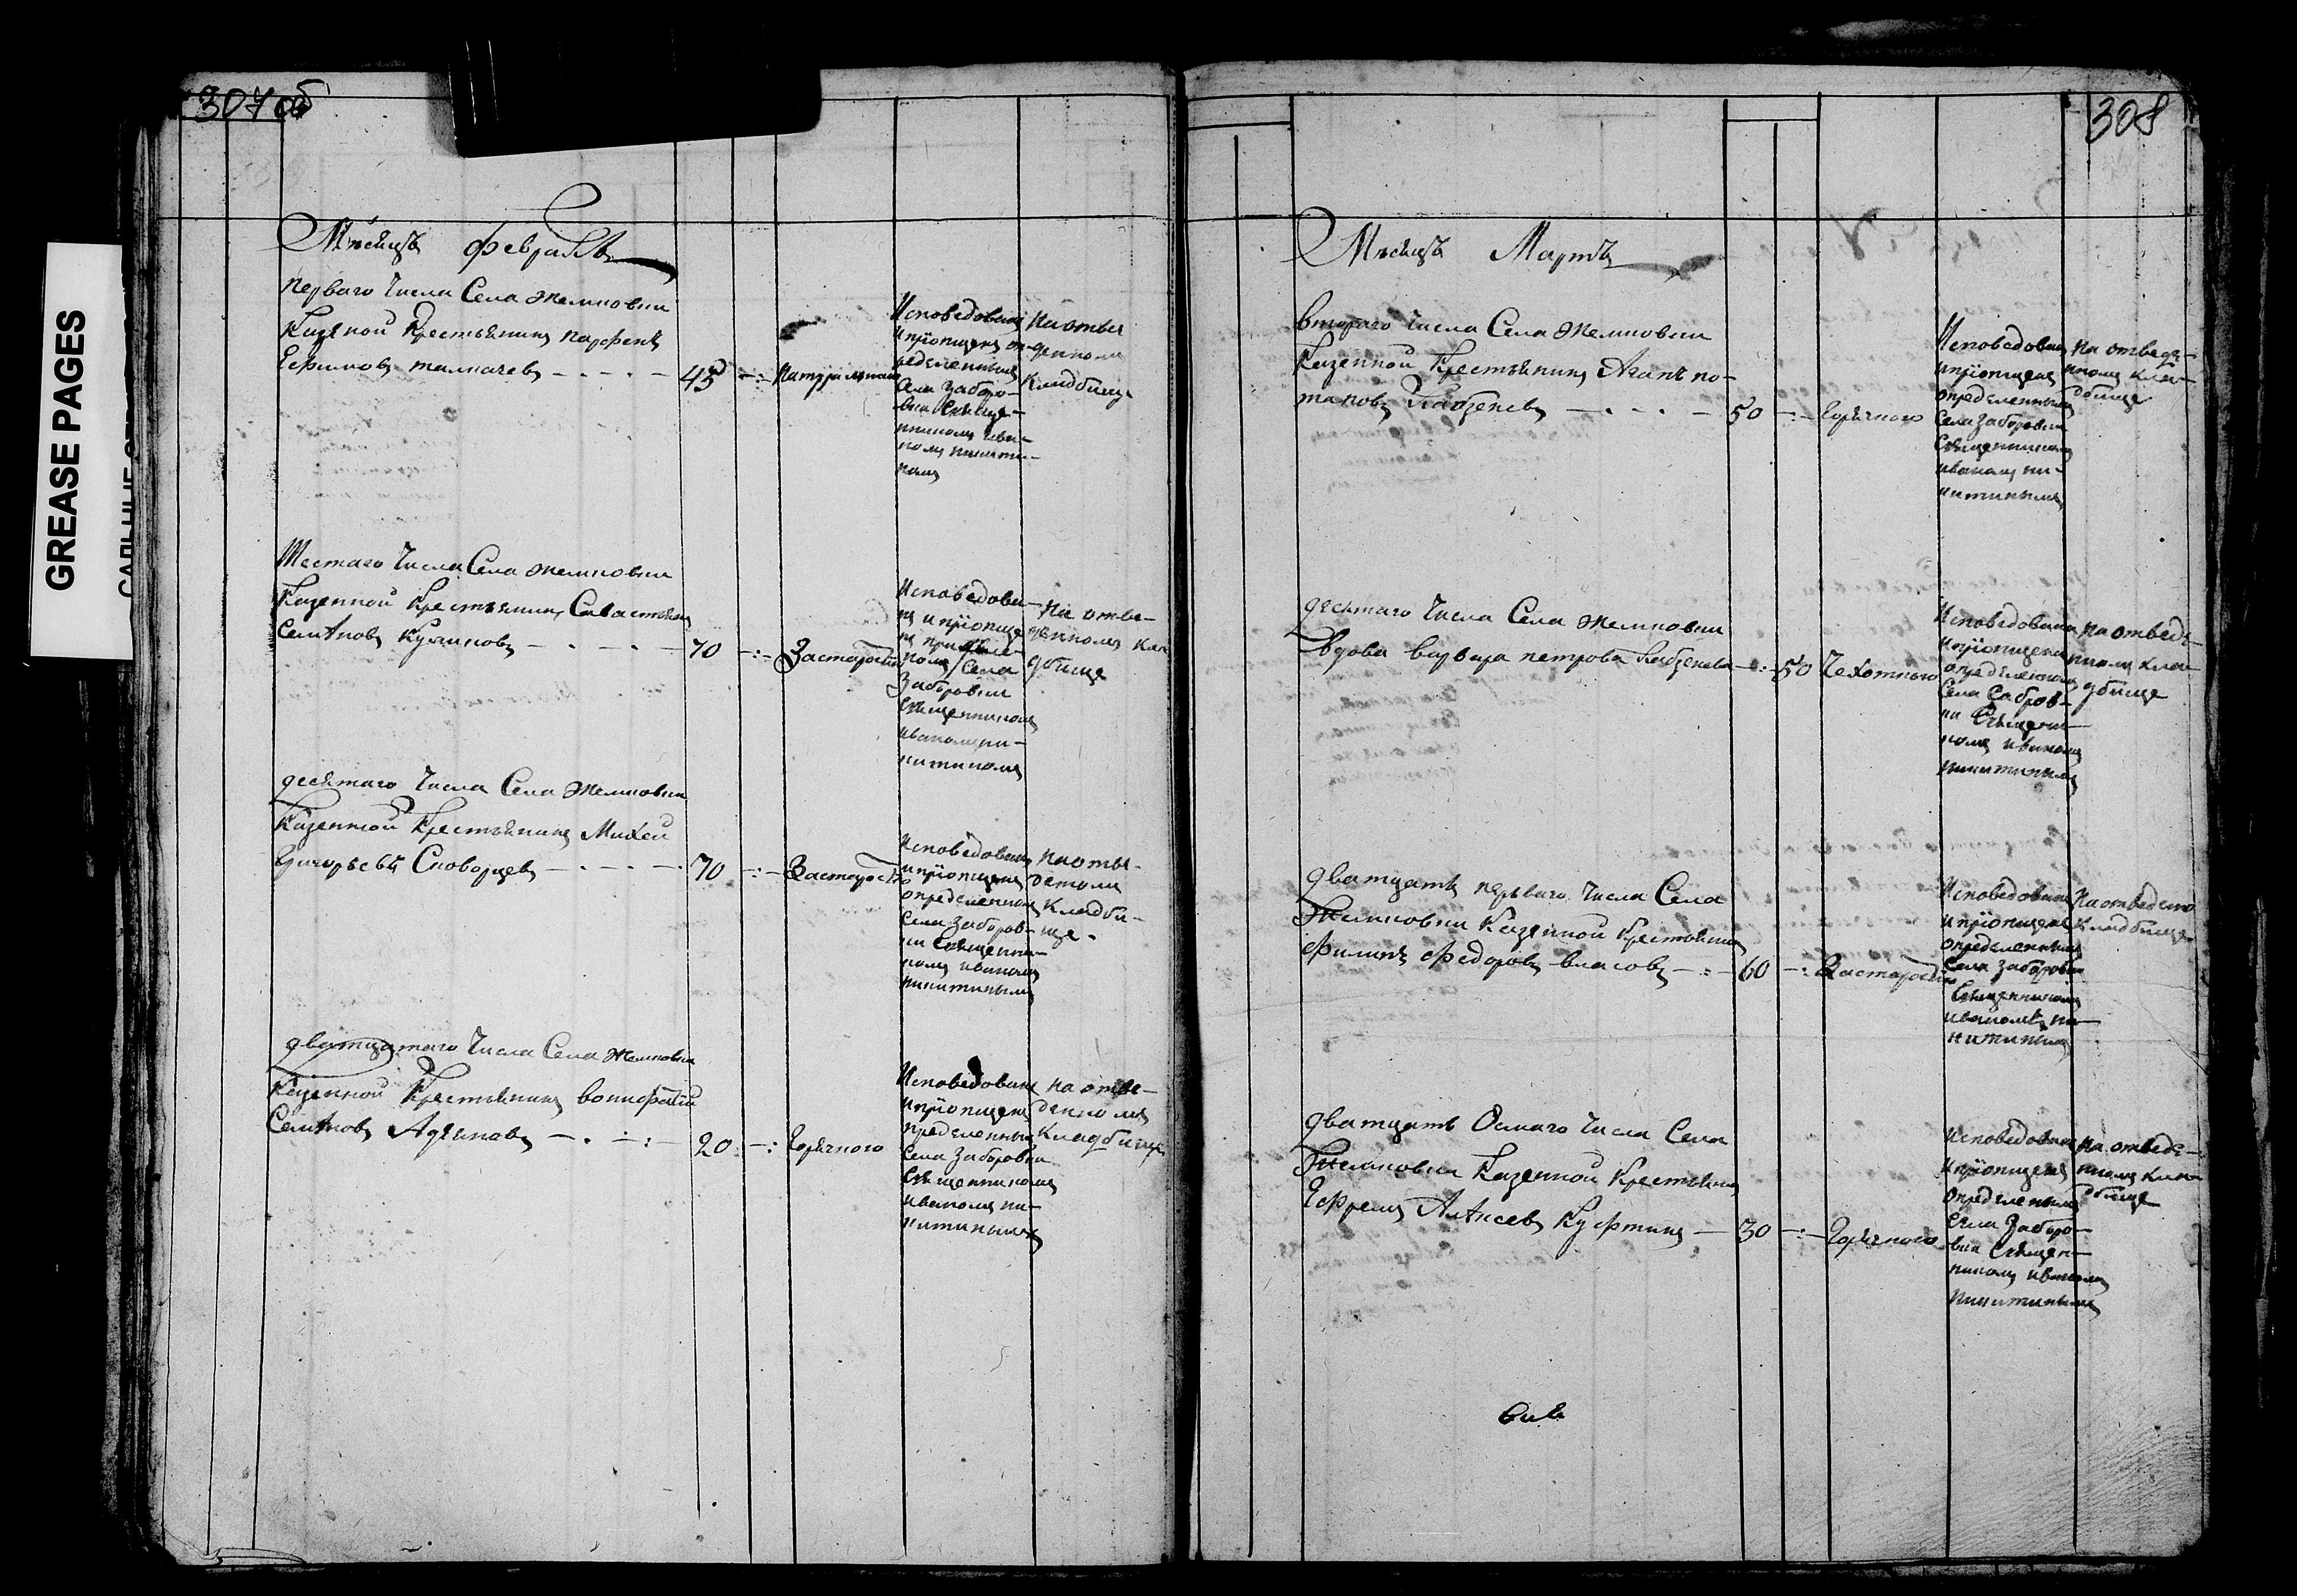 307 об
GREASE PAGES
Мѣсяцъ февраль
перваго числа Села жемковки
Казеной крестьянинъ парфенъ
Ефимовъ талмачевъ
45
натуральною
Исповедованъ
и приопщенъ оп-
ределеннымъ
Села заборо-
вки Священ-
никомъ ива-
номъ никити-
нымъ
На отве
денномъ
Кладбище
Шестаго числа Села жемковки
Казенной крестьянинъ Савастьянъ
70
Застаростию
Исповедова-
нъ и приопще
Села
Заборовки
Священникомъ
иваномъ ни-
китиномъ
На отве-
денномъ кла
дбище
десятаго числа Села жемковки
Казенной крестьянинъ Михей
Григорьевъ Скоборцевъ
70
Застарость
Исповедованъ
и приопщенъ
определеннымъ
Села Заборов-
ки Священни-
комъ иваномъ
никитинымъ
на отве-
деномъ
Кладби-
ще
дватцатаго числа Села жемковки
Казенной крестьянинъ вонифатий
20
Горячкою
Исповедованъ
и приопщенъ
пределеннымъ
Села Заборовки
Священникомъ
иваномъ ни-
китинымъ
на отве-
денномъ
Кладбище
308
Мѣсяцъ Мартъ
втораго числа Села жемковки
Казенной крестьянинъ Агапъ по-
таповъ
50
Горячкою
Исповедованъ
и приопщенъ
определеннымъ
Села Заборовки
Священникомъ
иваномъ ни-
китинымъ
на отведе-
нномъ кла-
дбище
десятаго числа Села жемковки
вдова варвара петрова
50
Чехоткою
Исповедована
и приопщена
определеннымъ
Села Заборов-
ки Священи-
комъ иваномъ
никитинымъ
на отведе-
нномъ кла-
дбище
дватцать перваго числа Села
Жемковки Казенной крестьянинъ
филипъ федоровъ власовъ
60
Застаростию
Исповедованъ
и приопщенъ
определеннымъ
Села Заборовки
Священникомъ
иваномъ ни-
китинымъ
На отведено
Кладбище
дватцать Осмаго числа Села
Жемковки Казенной крестьянинъ
Ефремъ Алѣксеевъ Куфтинъ
30
Горячкою
Исповедованъ
и приопщенъ
определенымъ
Села Заборо-
вки Священ-
никомъ иваномъ
никитинымъ
На отведе-
нномъ кла-
дбище